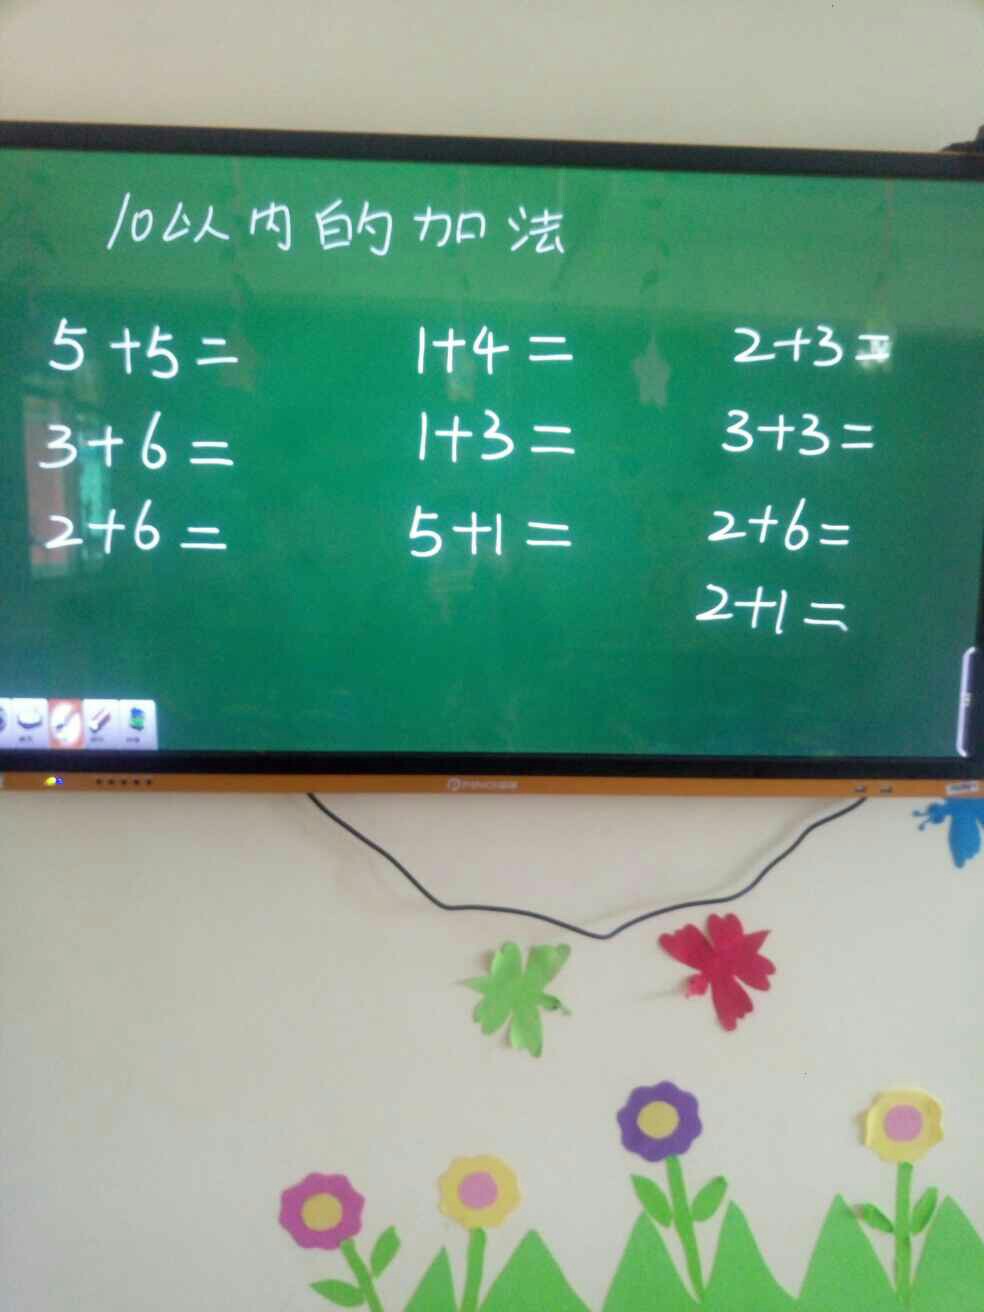 10以内的加法
5+5= 1+4= 2+3=
3+6= 1+3= 3+3=
2+6= 5+1= 2+6=
2+1=